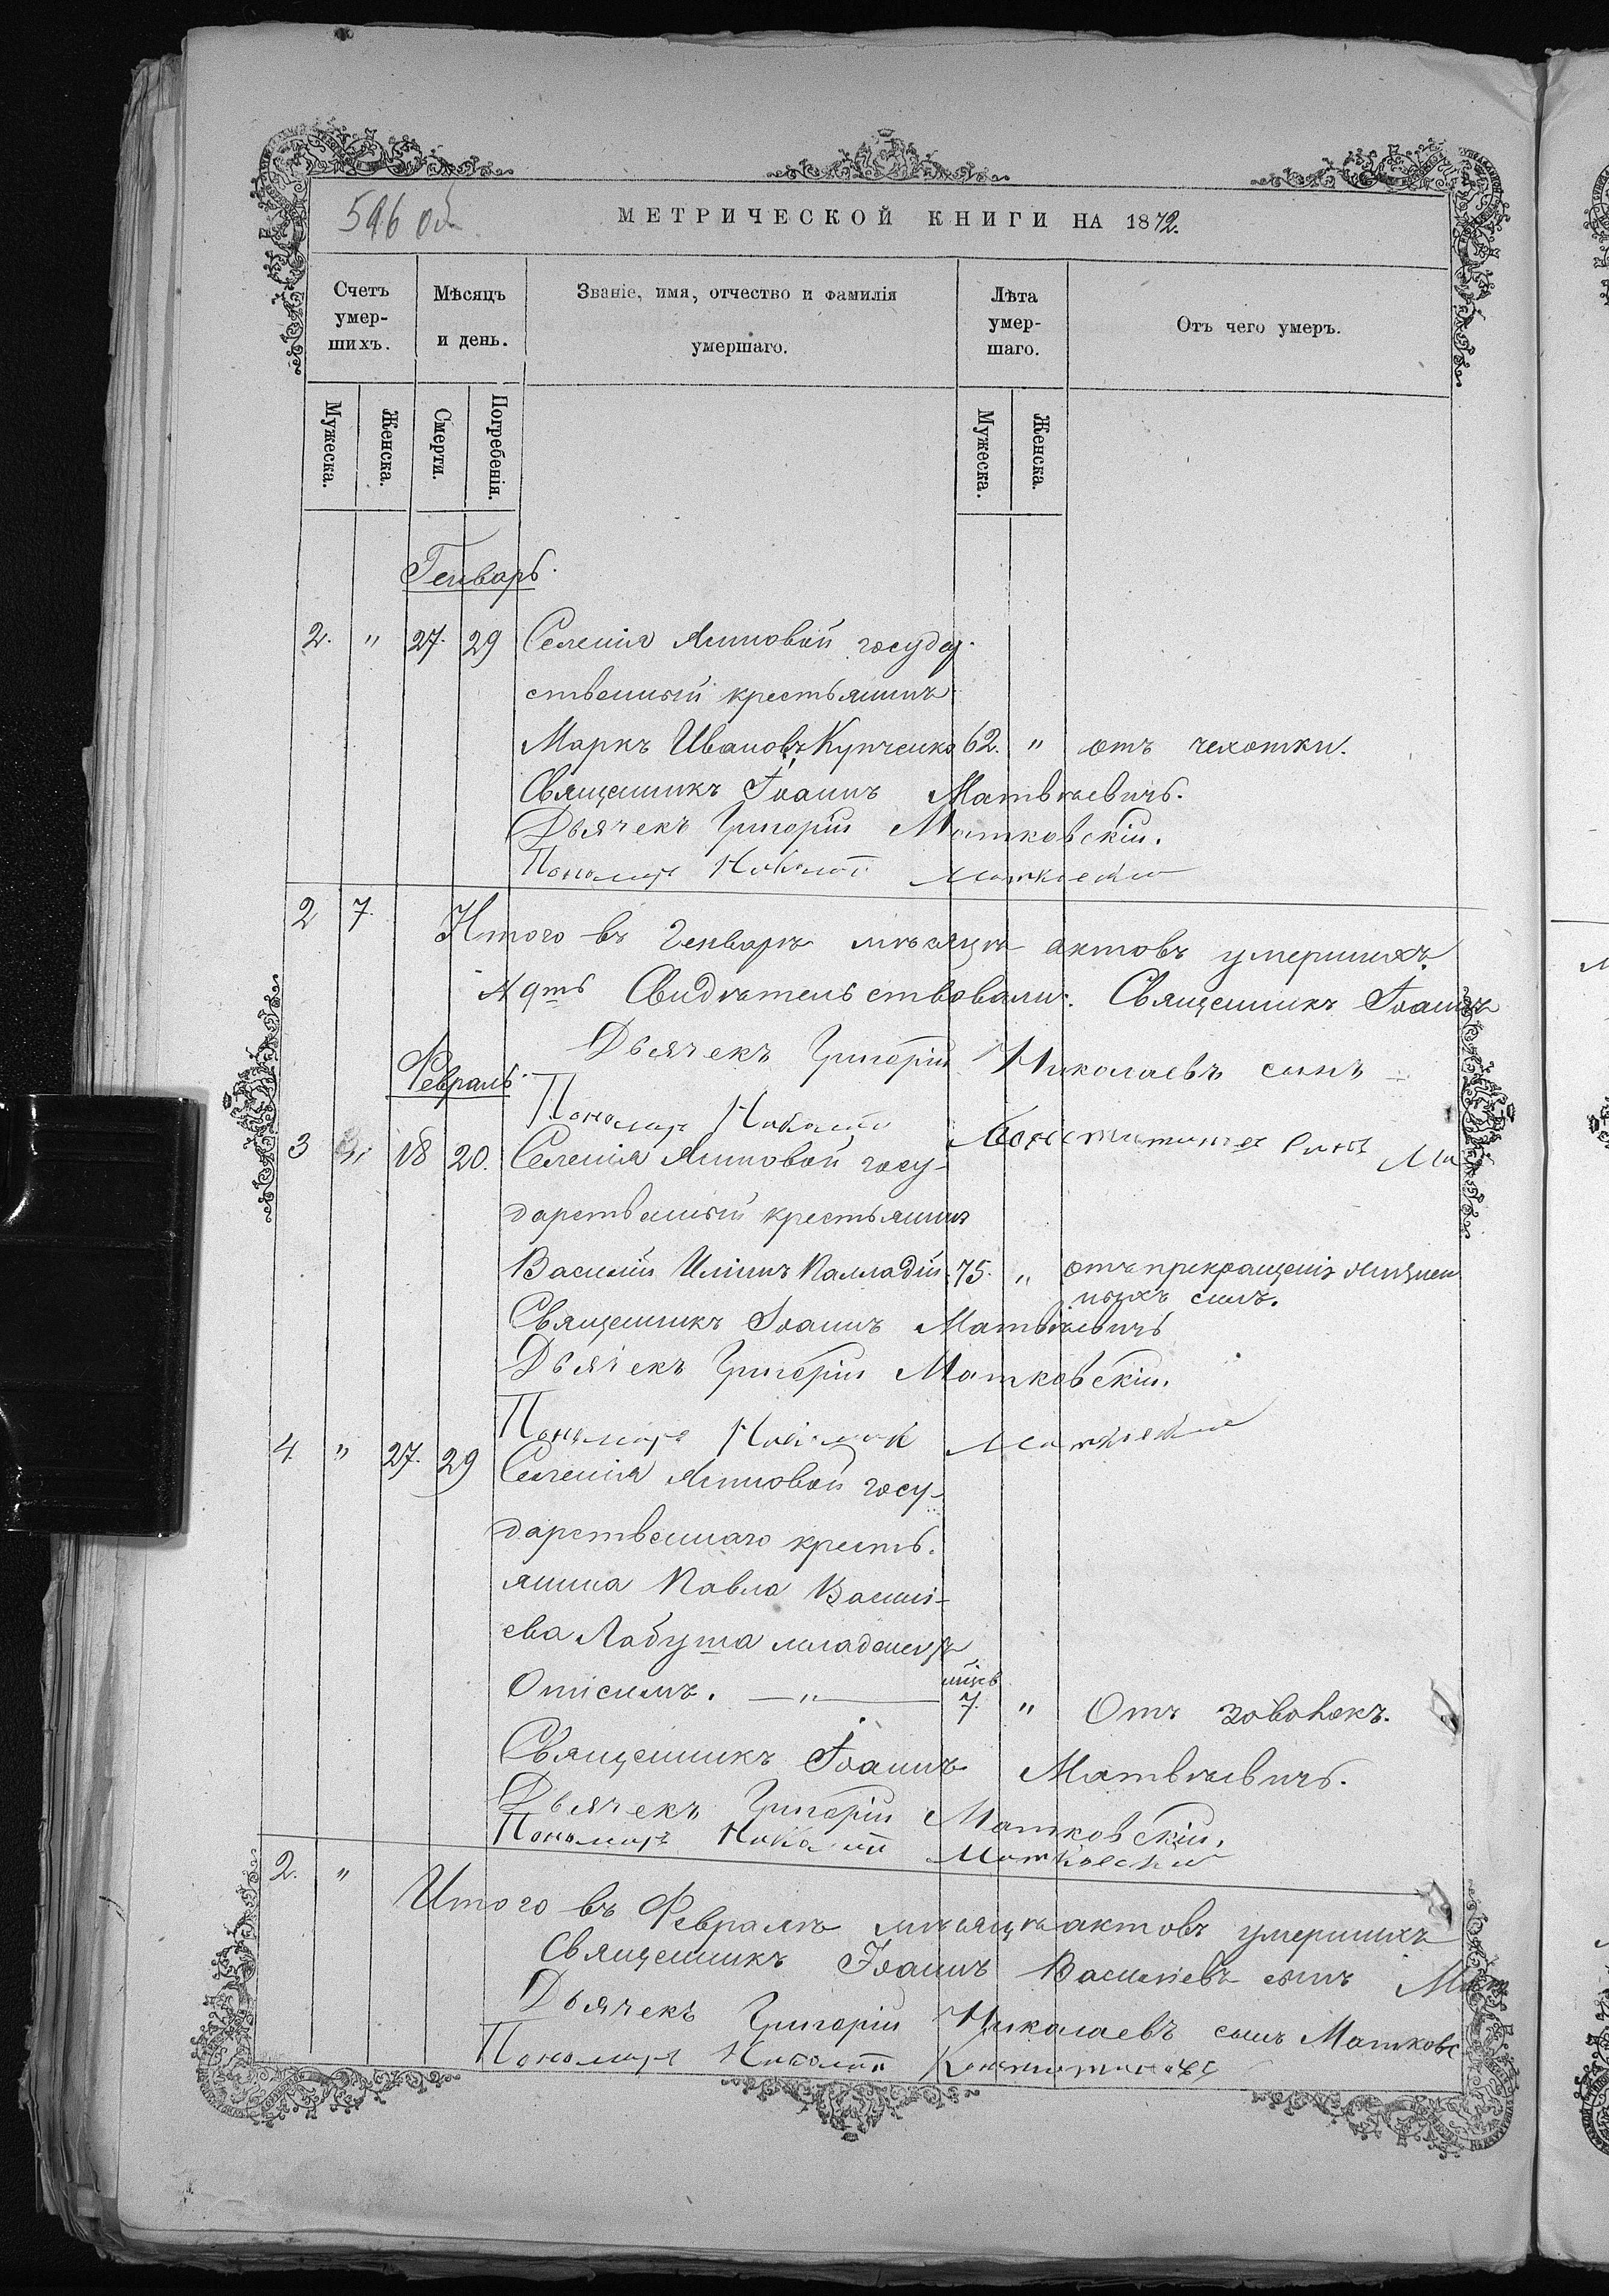 596 об
МЕТРИЧЕСКОЙ КНИГИ НА 1872.
Счетъ умер-шихъ.
Мѣсяцъ и день.
Званіе, имя, отчество и фамилія умершаго.
Лѣта умер-шаго.
Отъ чего умеръ.
Мужеска.
Женска.
Смерти.
Погребенія.
Мужеска.
Женска.
Генварь.
2. " 27. 29 Селенія Яновой госуда-
ственный крестьянинъ
Маркъ Ивановъ Купченко 62. " отъ чехотки.
Священникъ Іоаннъ Матвѣевичъ.
Дьячекъ Григорій Матковскій.
Пономарь Николай Матковскій
2 7. Итого въ Генварѣ мѣсяцѣ актовъ умершихъ
Свидѣтельствовали: Священникъ Іоаннъ
Дьячекъ Григорій Николаевъ сынъ
Февраль.
Пономарь Николай Константиновъ сынъ Ма
3 18 20. Селенія Яновой госу-
дарственный крестьянинъ
Василій Ильинъ Палладій 75. " отъ прекращенія жизнен
ныхъ силъ.
Священникъ Іоаннъ Матвѣевичъ
Дьячекъ Григорій Матковскій.
Пономарь Николай Матковскій
4. " 27. 29 Селенія Яновой госу-
дарственнаго кресть.
янина Павла Васил-
ева Лабуша младенецъ
" мцев 7. " Отъ
Священникъ Іоаннъ Матвѣевичъ.
Дьячекъ Григорій Матковскій.
Пономарь Николай Матковскій
2. " Итого въ Февралѣ мѣсяцѣ актовъ умершихъ
Священникъ Іоаннъ Василіевъ сынъ Мат
Дьячекъ Григорій Николаевъ сынъ Матковс
Пономарь Николай Константиновъ